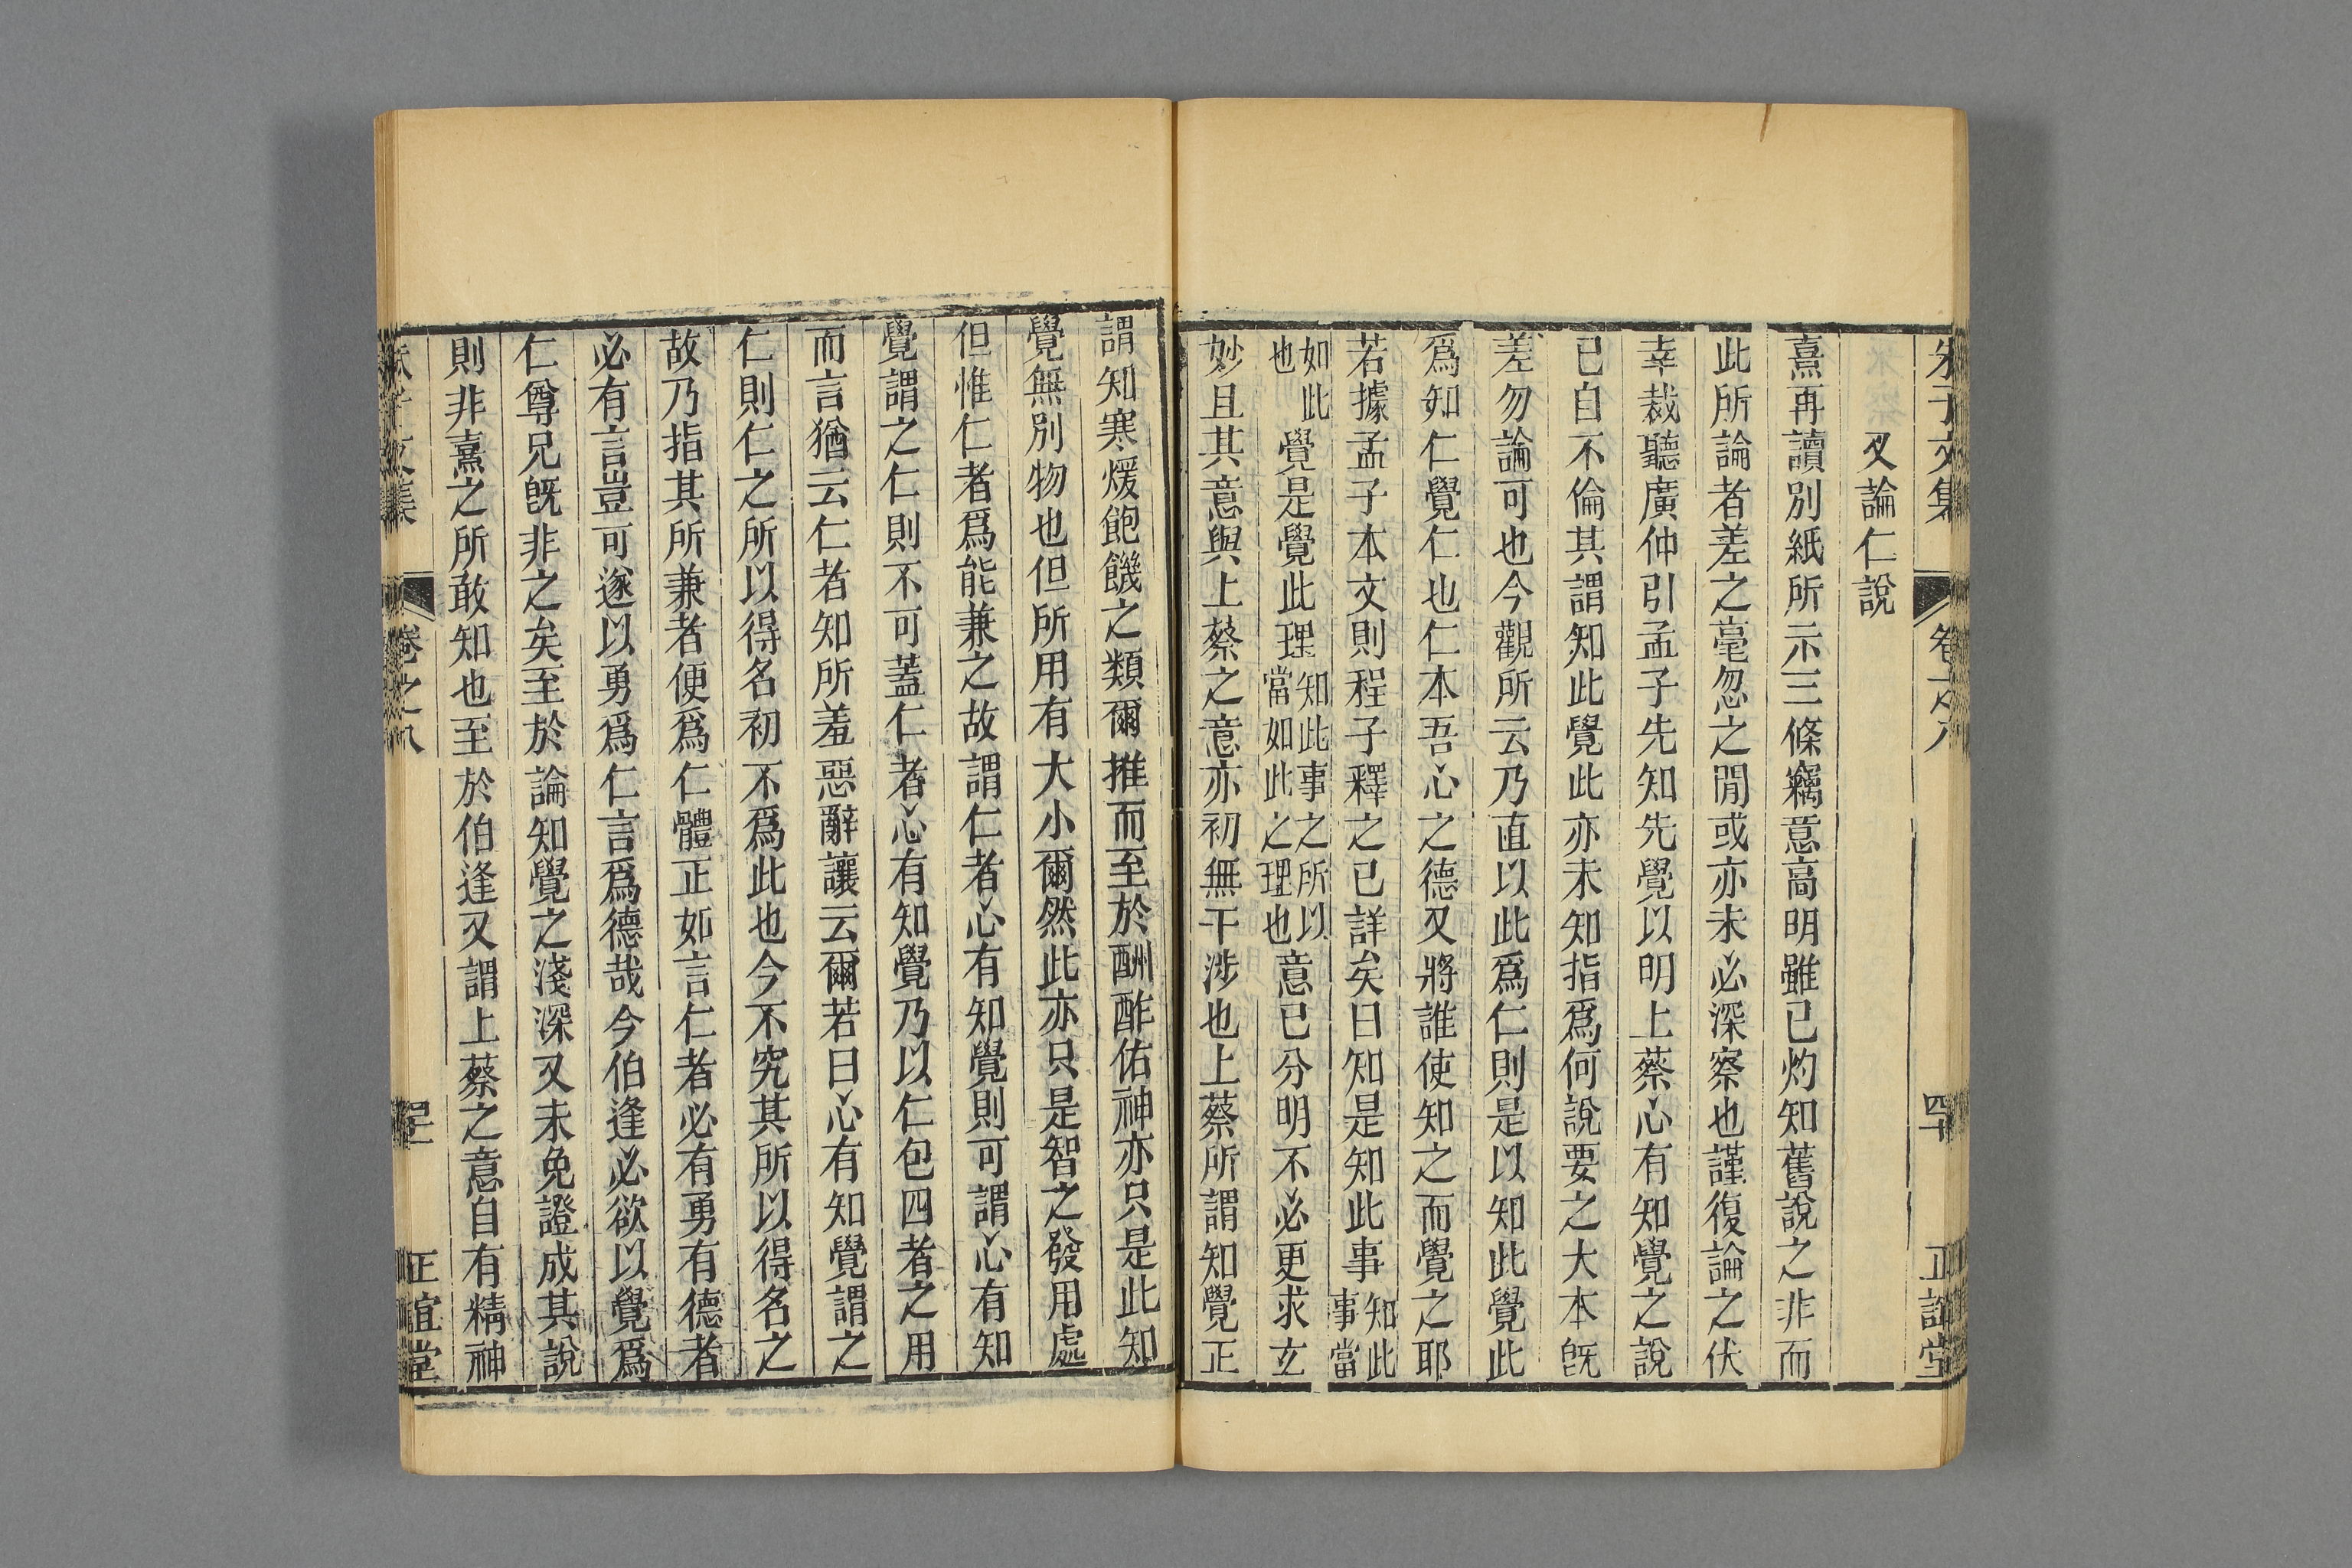 朱子文集 卷之八 四十 正誼堂
又論仁說
熹再讀別紙所示三條竊意高明雖已灼知舊說之非而
此所論者差之毫忽之閒或亦未必深察也謹復論之伏
幸裁聽廣仲引孟子先知先覺以明上蔡心有知覺之說
已自不倫其謂知此覺此亦未知指爲何說要之大本旣
差勿論可也今觀所云乃直以此爲仁則是以知此覺此
爲知仁覺仁也仁本吾心之德又將誰使知之而覺之耶
若據孟子本文則程子釋之已詳矣曰知是知此事知此事當
如此也覺是覺此理知此事之所以當如此之理也意已分明不必更求玄
妙且其意與上蔡之意亦初無干涉也上蔡所謂知覺正
謂知寒煖飽饑之類爾推而至於酬酢佑神亦只是此知
覺無別物也但所用有大小爾然此亦只是智之發用處
但惟仁者爲能兼之故謂仁者心有知覺則可謂心有知
覺謂之仁則不可蓋仁者心有知覺乃以仁包四者之用
而言猶云仁者知所羞惡辭讓云爾若曰心有知覺謂之
仁則仁之所以得名初不爲此也今不究其所以得名之
故乃指其所兼者便爲仁體正如言仁者必有勇有德者
必有言豈可遂以勇爲仁言爲德哉今伯逢必欲以覺爲
仁尊兄旣非之矣至於論知覺之淺深又未免證成其說
則非熹之所敢知也至於伯逢又謂上蔡之意自有精神
文集 卷之八 正誼堂